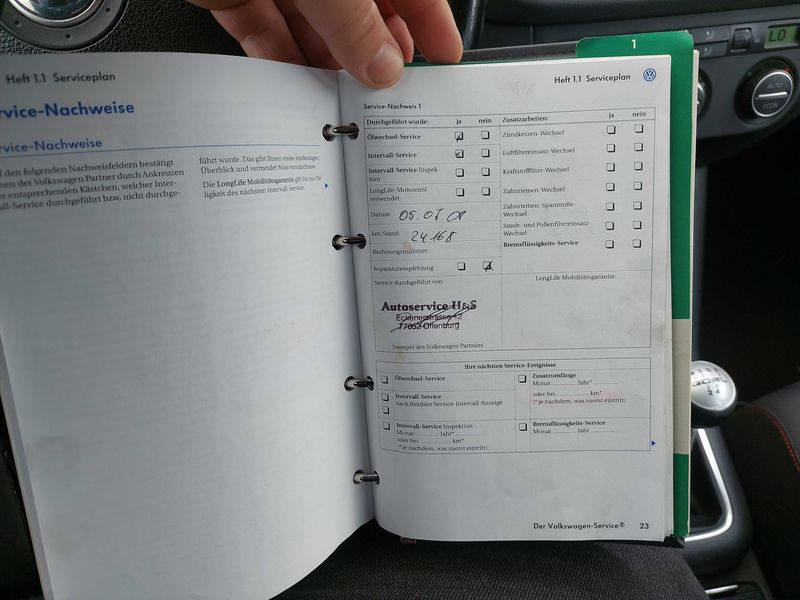 Heft 1.1 Serviceplan
rvice-Nachweise
rvice-Nachweise
f den folgenden Nachweisfeldern bestätigt
nen der Volkswagen Partner durch Ankreuzen
er entsprechenden Kästchen, welcher Inter-
all-Service durchgeführt bzw. nicht durchge-
führt wurde. Das gibt Ihnen einen eindeutigen
Überblick und vermeidet Missverständnisse.
Die LongLife Mobilitätsgarantie gilt bis zur Fäl-
ligkeit des nächsten Intervall-Service.
1
Heft 1.1 Serviceplan
Service-Nachweis 1
Durchgeführt wurde: ja nein
Ölwechsel-Service
Intervall-Service
Intervall-Service Inspek-
tion
LongLife-Motorenöl
verwendet
Datum: 05.07.01
km-Stand: 24168
Rechnungsnummer:
Reparaturempfehlung
Service durchgeführt von:
Autoservice H&S
Eckenerstrasse 12
77652 Offenburg
Stempel des Volkswagen Partners
Zusatzarbeiten: ja nein
Zündkerzen-Wechsel
Luftfiltereinsatz-Wechsel
Kraftstofffilter-Wechsel
Zahnriemen-Wechsel
Zahnriemen- Spannrolle-
Wechsel
Staub- und Pollenfiltereinsatz-
Wechsel
Bremsflüssigkeits-Service
LongLife Mobilitätsgarantie:
Ihre nächsten Service-Ereignisse
Ölwechsel-Service
Intervall-Service
nach flexibler Service-Intervall-Anzeige
Intervall-Service Inspektion
Monat Jahr*
oder bei km*
(* je nachdem, was zuerst eintritt)
Zusatzumfänge
Monat Jahr*
oder bei km*
(* je nachdem, was zuerst eintritt)
Bremsflüssigkeits-Service
Monat Jahr
Der Volkswagen-Service® 23
LO
AUTO
ECON